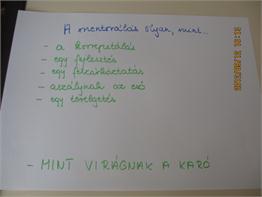 A mentorálás olyan, mint...
- a korrepetálás
- egy fejlesztés
- egy felzárkóztatás
- aszálynak az eső
- egy terelgetés
- MINT VIRÁGNAK A KARÓ